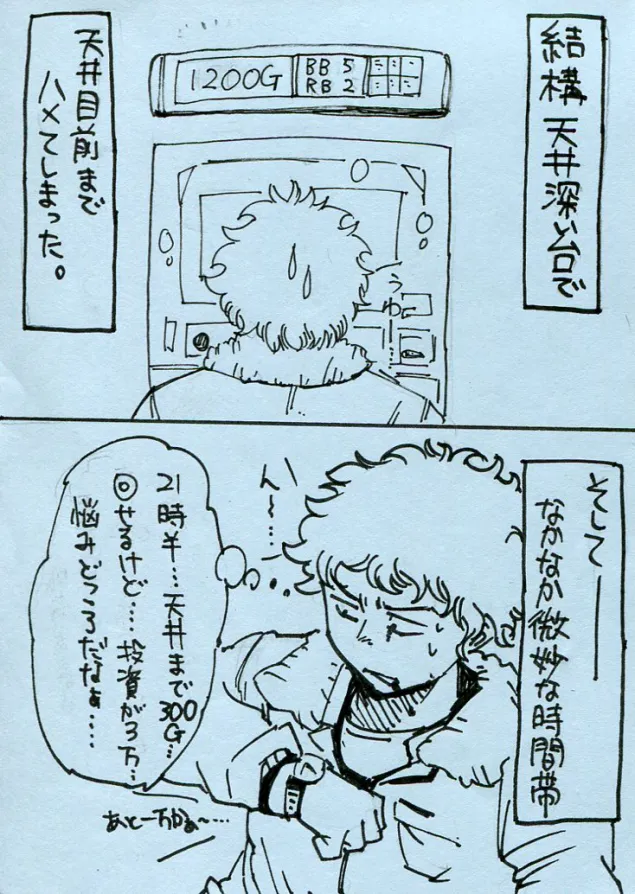 結構 天井深い台で
1200G
BB 5
RB 2
天井目前まで
ハメてしまった。
うわ…
そして――
なかなか微妙な時間帯
ん〜…
21時半…天井まで300G…
回せるけど…投資が3万…
悩みどころだなぁ…
あと一万かぁ〜…